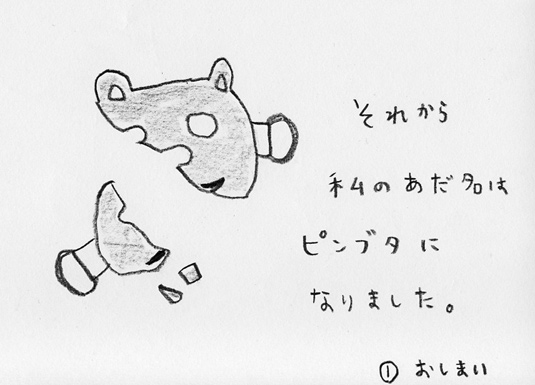 それから
私のあだ名は
ピンブタに
なりました。
① おしまい